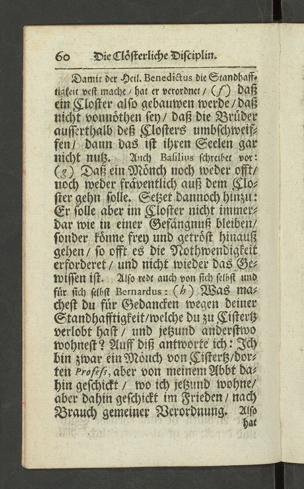 60 Die Clösterliche Disciplin.
Damit der Heil. Benedictus die Standhaff-
tigkeit vest mache / hat er verordnet / (f) daß
ein Closter also gebauwen werde / daß
nicht vounöthen sey / daß die Brüder
ausserthalb deß Closters umbschweif-
fen / dann das ist ihren Seelen gar
nicht nutz. Auch Basilius schreibet vor:
(g) Daß ein Mönch noch weder offt /
noch weder fräventlich auß dem Clo-
ster gehn solle. Setzet dannoch hinzu:
Er solle aber im Closter nicht immer-
dar wie in einer Gefängnuß bleiben /
sonder könne frey und getröst hinauß
gehen / so offt es die Nothwendigkeit
erforderet / und nicht wieder das Ge-
wissen ist. Also redt auch von sich selbst und
für sich selbst Bernardus: (h) Was ma-
chest du für Gedancken wegen deiner
Standhafftigkeit / welche du zu Cistertz
verlobt hast / und jetzund anderstwo
wohnest? Auff diß antworte ich: Ich
bin zwar ein Mönch von Cistertz / dor-
ten Profess, aber von meinem Abbt da-
hin geschickt / wo ich jetzund wohne /
aber dahin geschickt im Frieden / nach
Brauch gemeiner Verordnung. Also
hat